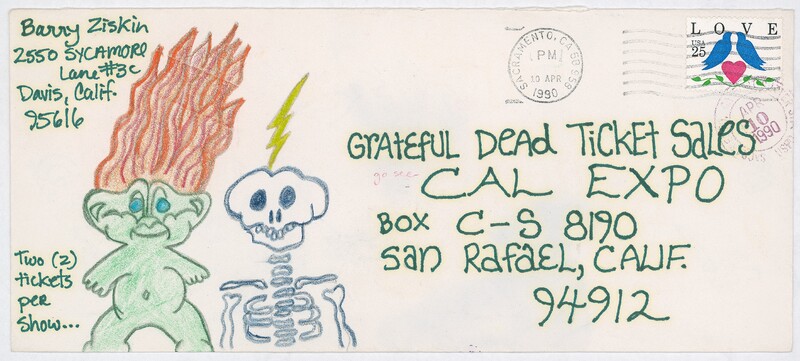 Barry Ziskin
2550 SYCAMORE
Lane #3c
Davis, Calif.
95616
Two (2)
tickets
per
show...
SACRAMENTO, CA
PM
10 APR
1990
LOVE
USA
25
APR
10
1990
GRATEFUL Dead TICKET Sales
go see
CAL EXPO
BOX C-S 8190
San Rafael, CALIF.
94912